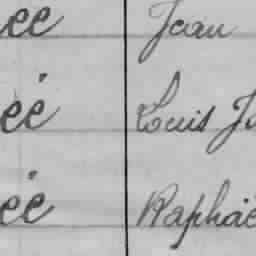 ée Jean
ée Louis J
ée Raphaë